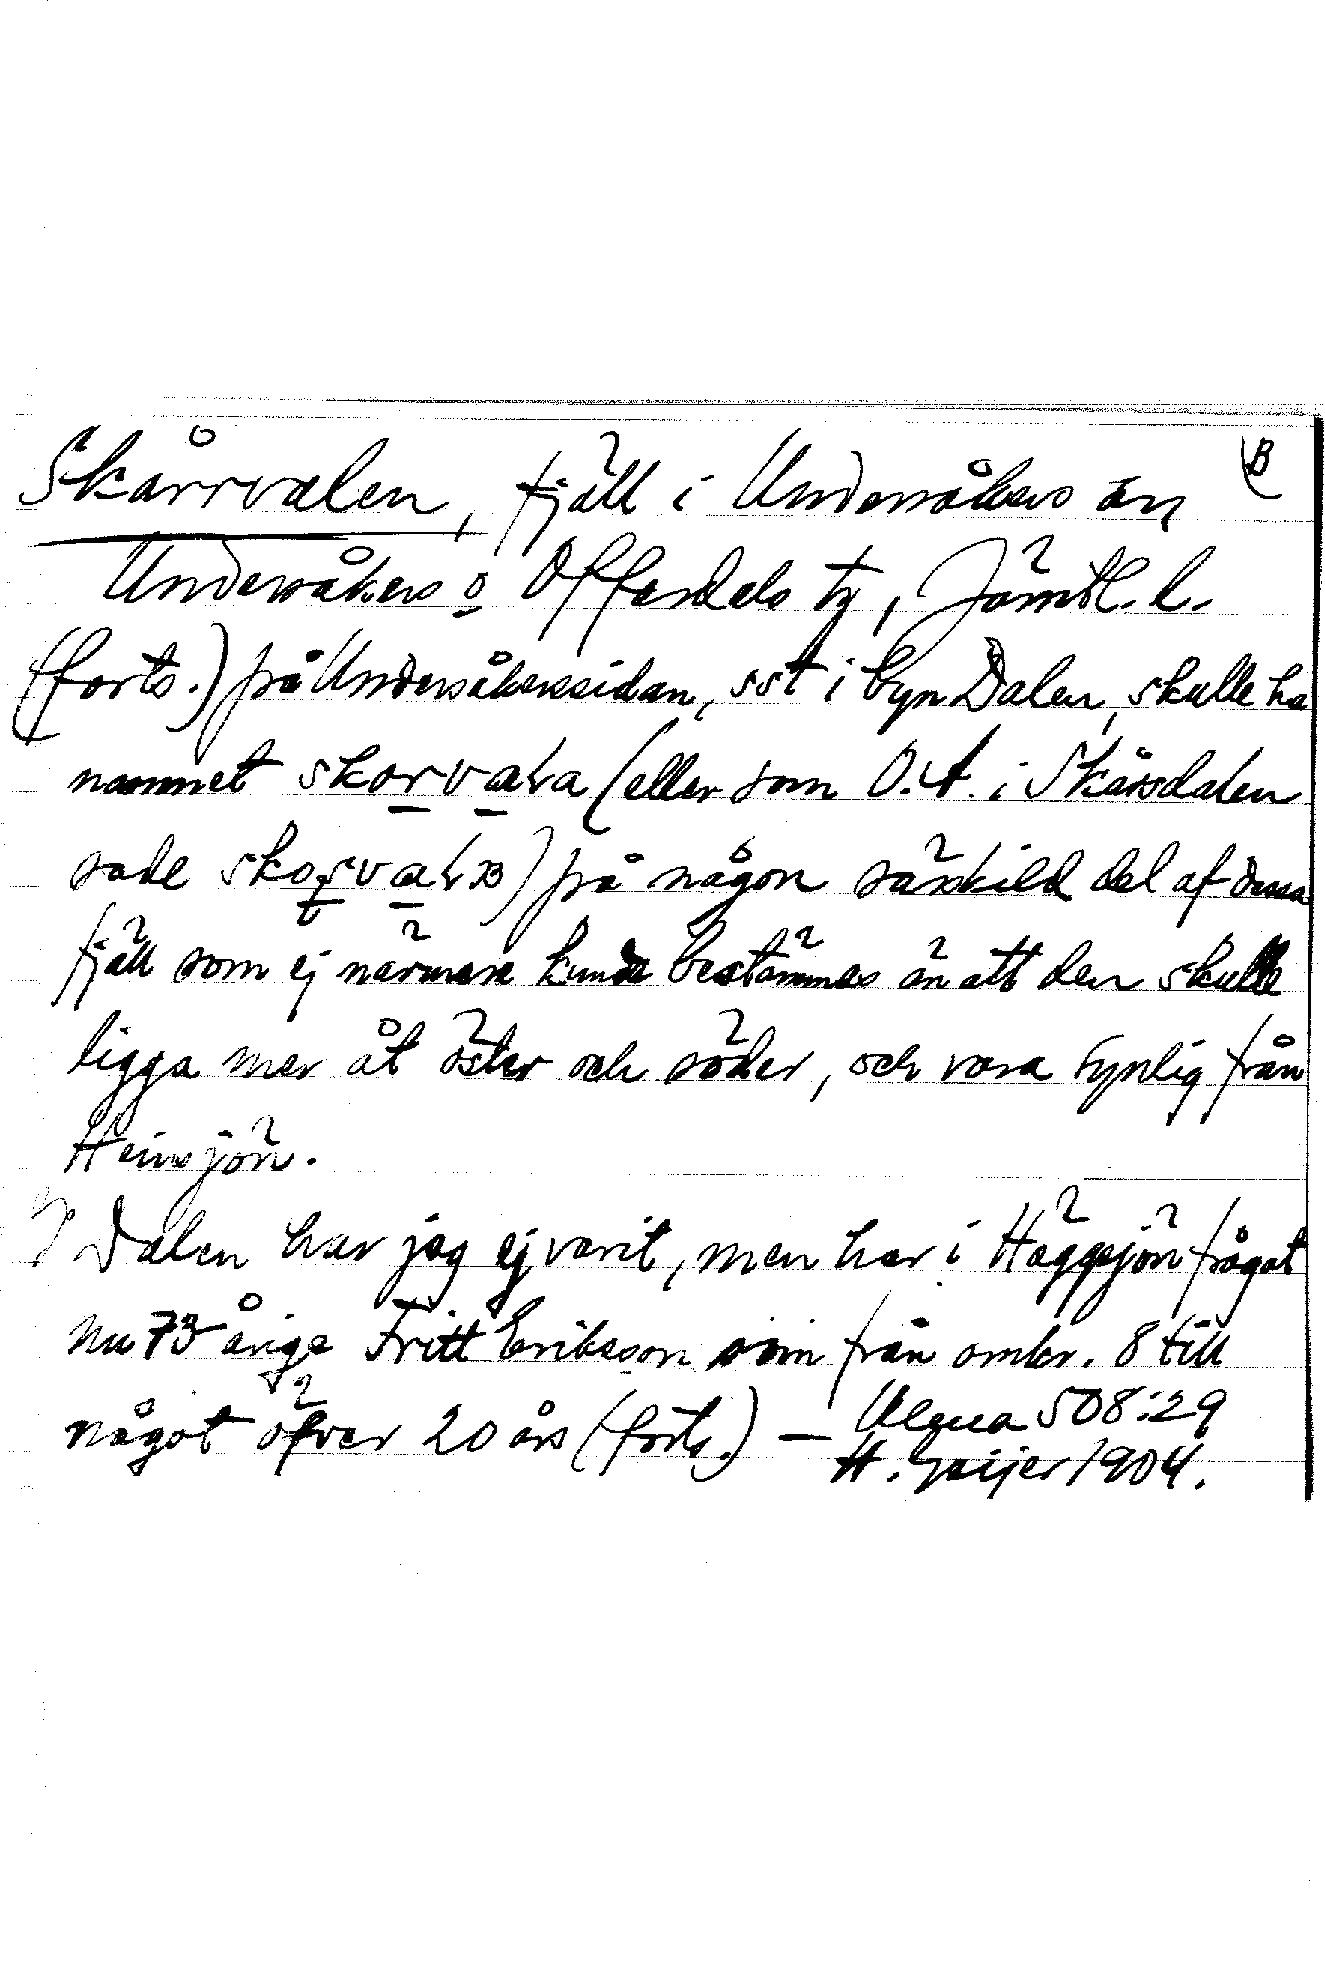 Skårrvalen, fjäll i Undersåkers sn B
Undersåkers o Offerdals tg, Jämtl. l.
(forts.) på Undersåkerssidan, sst i byn Dalen, skulle ha
namnet skorvaɫa (eller som O.A. i Skårsdalen
sade skorvaɫɜ) på någon särskild del af dessa
fjäll som ej närmare kunde bestämmas än att den skulle
ligga mer åt öster och söder, och vara synlig från
Heinsjön.
I Dalen har jag ej varit, men har i Häggsjön frågat
nu 73-årige Fritt Eriksson som från omkr. 8 till
något öfver 20 års (forts.) — Ulma 508:29
H. Geijer 1904.